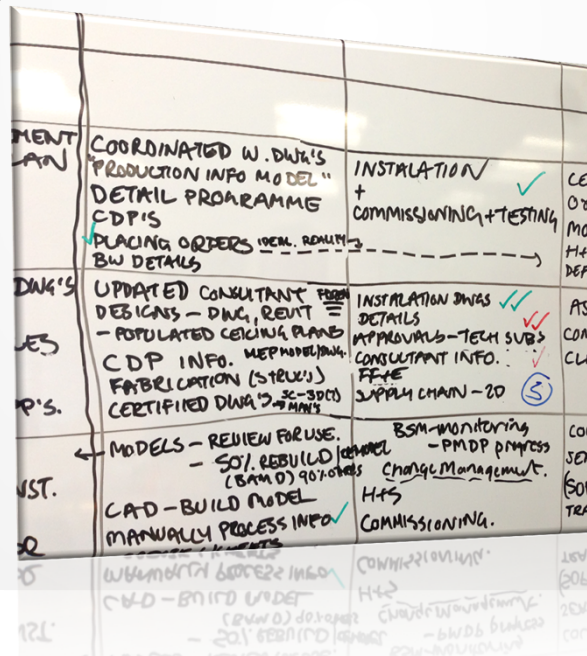 MENT
LAN
COORDINATED W. DWG'S
"PRODUCTION INFO MODEL"
DETAIL PROGRAMME
CDP'S
PLACING ORDERS IDEAL. REALITY
BW DETAILS
INSTALATION
+
COMMISSIONING + TESTING
CE
MO
H+
DEF
DWG'S
ES
P'S.
UPDATED CONSULTANT
DESIGNS - DWG, REVIT
- POPULATED CEILING PLANS
CDP INFO. MEP MODEL/DWG.
FABRICATION (STRUC'S)
CERTIFIED DWG'S
INSTALATION DWGS
DETAILS
APPROVALS - TECH SUBS
CONSULTANT INFO.
FF+E
SUPPLY CHAIN - 2D
5
AS
CON
CL
NST.
MODELS - REVIEW FOR USE.
- 50% REBUILD
(BAM D) 90%
CAD - BUILD MODEL
MANUALLY PROCESS INFO
BSM - monitoring
- PMDP progress
Change Management.
H+S
COMMISSIONING.
CO
SE
(SO
TRA